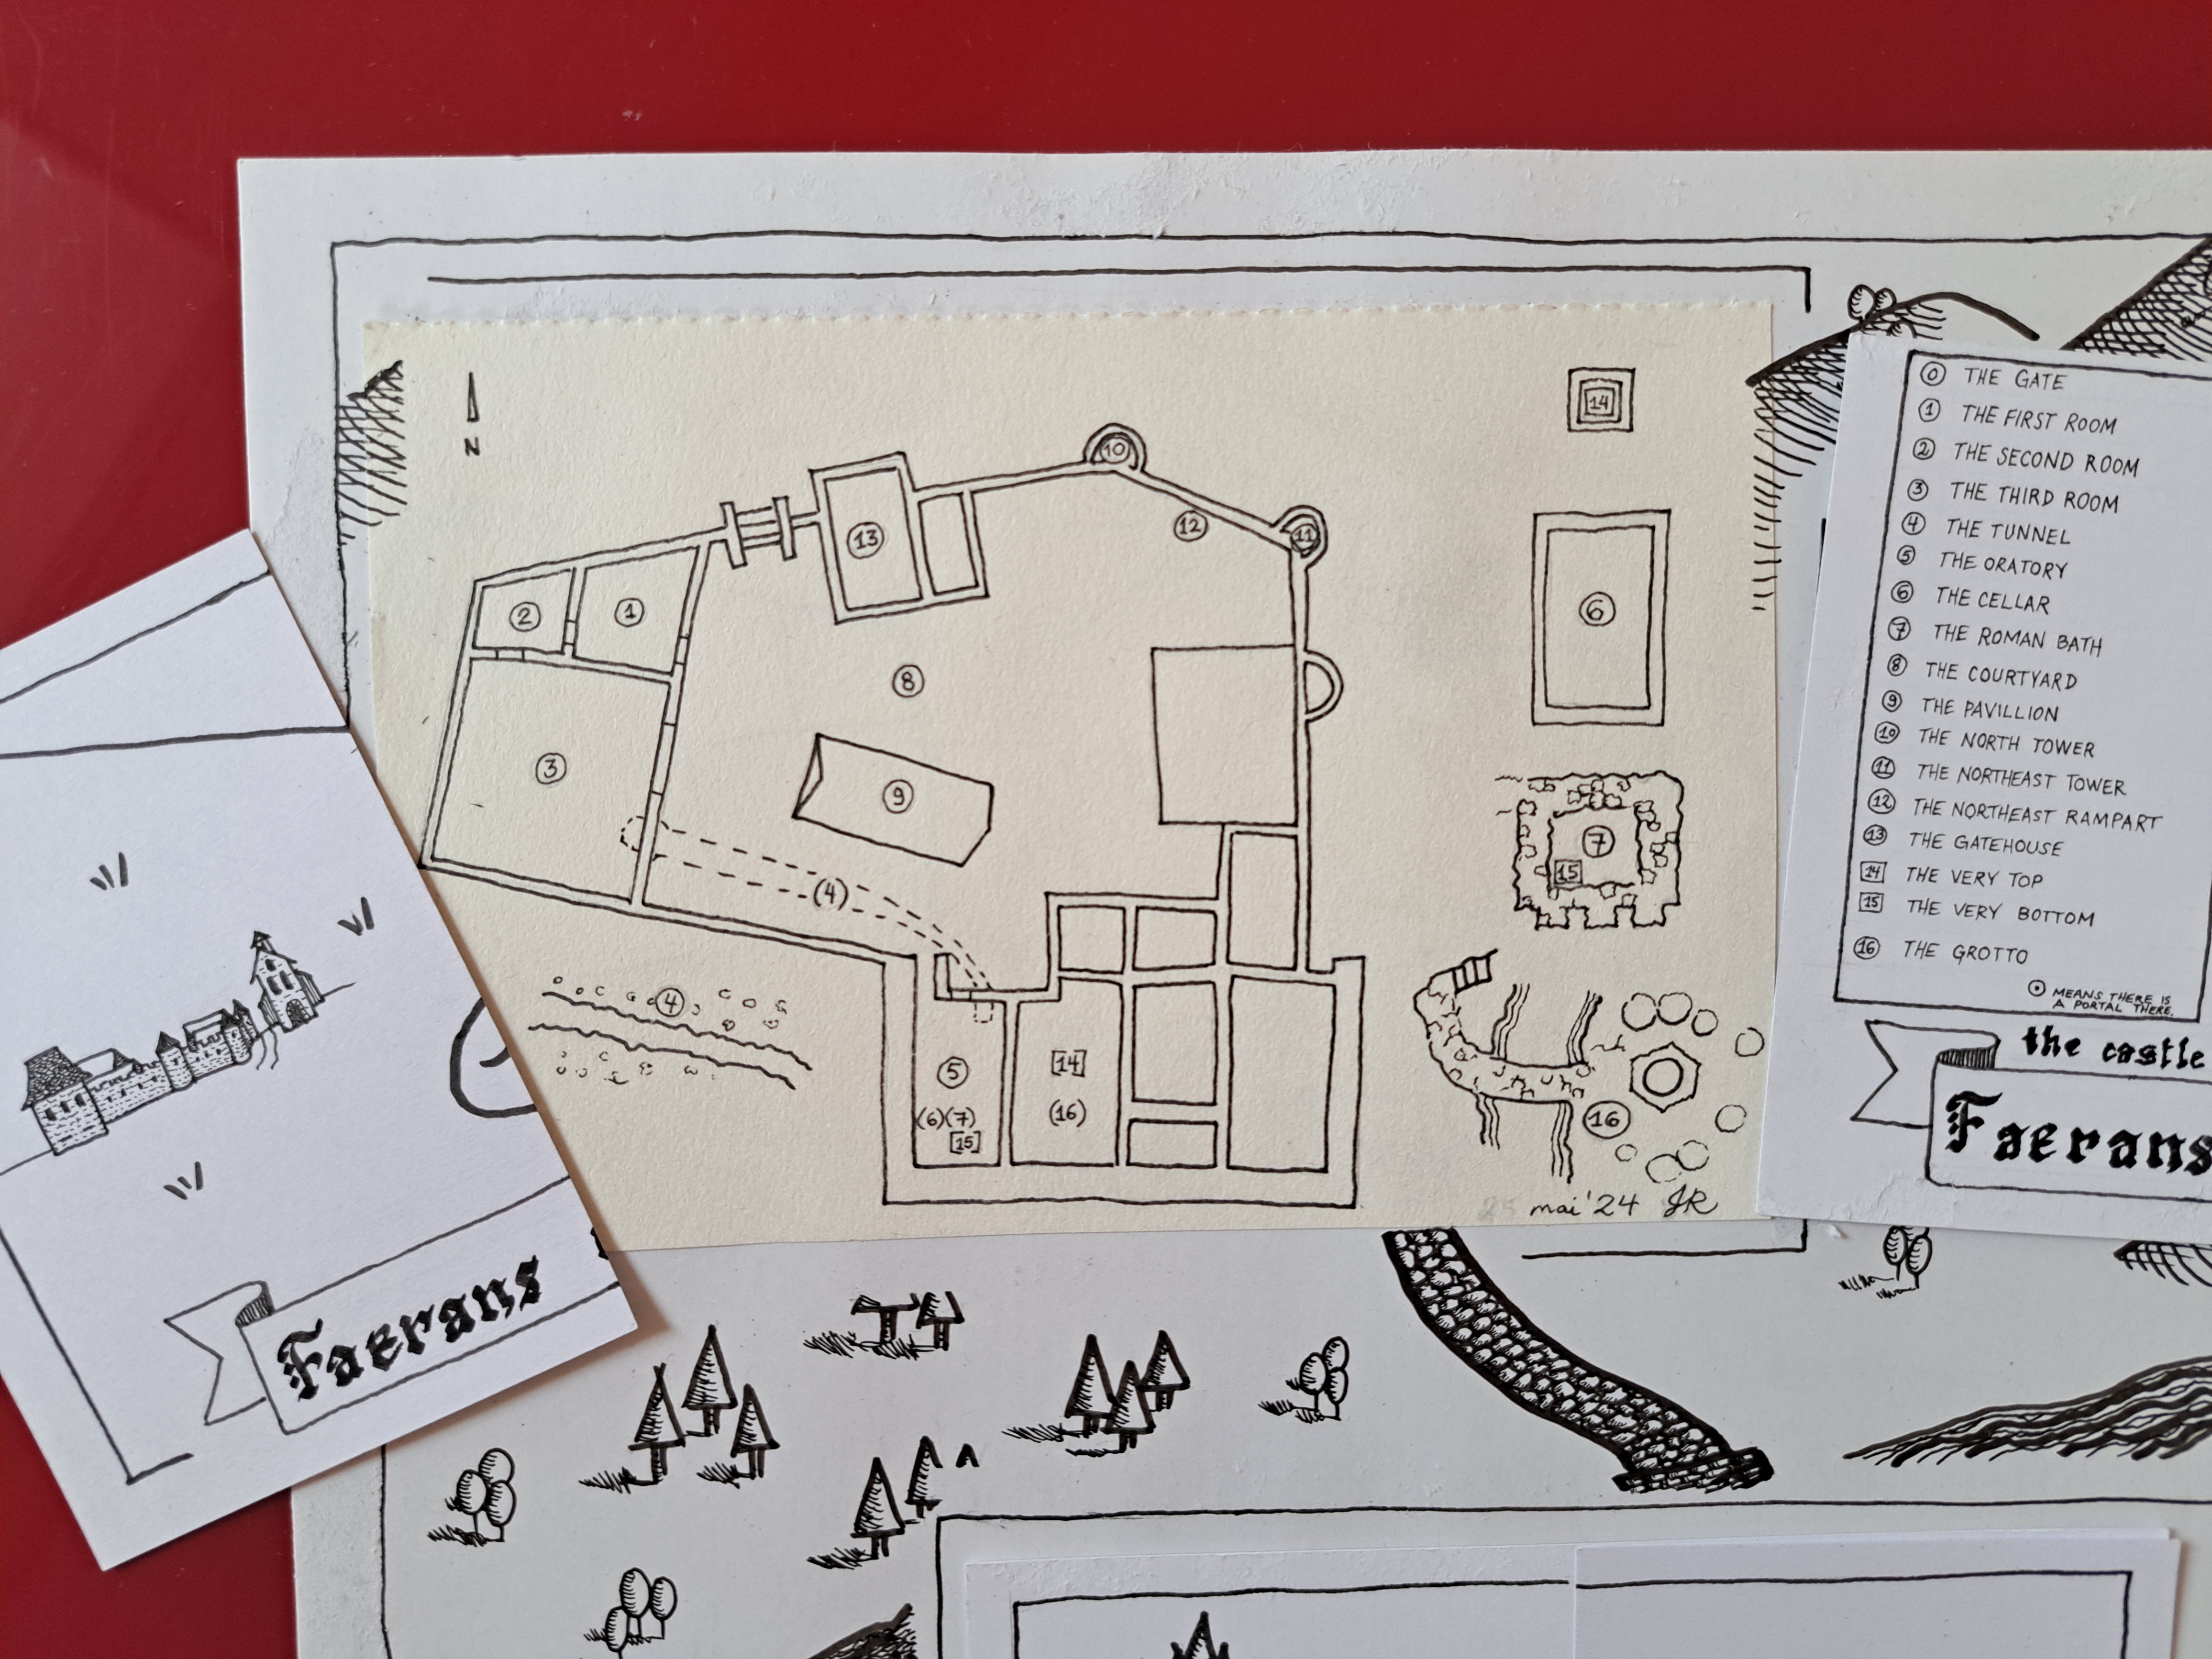 N
14
10
13
12
11
2
1
6
8
3
9
7
15
(4)
4
5
14
(6)(7)
(16)
15
16
mai '24 JR
0 THE GATE
1 THE FIRST ROOM
2 THE SECOND ROOM
3 THE THIRD ROOM
4 THE TUNNEL
5 THE ORATORY
6 THE CELLAR
7 THE ROMAN BATH
8 THE COURTYARD
9 THE PAVILLION
10 THE NORTH TOWER
11 THE NORTHEAST TOWER
12 THE NORTHEAST RAMPART
13 THE GATEHOUSE
14 THE VERY TOP
15 THE VERY BOTTOM
16 THE GROTTO
MEANS THERE IS
A PORTAL THERE.
the castle
Faerans
Faerans